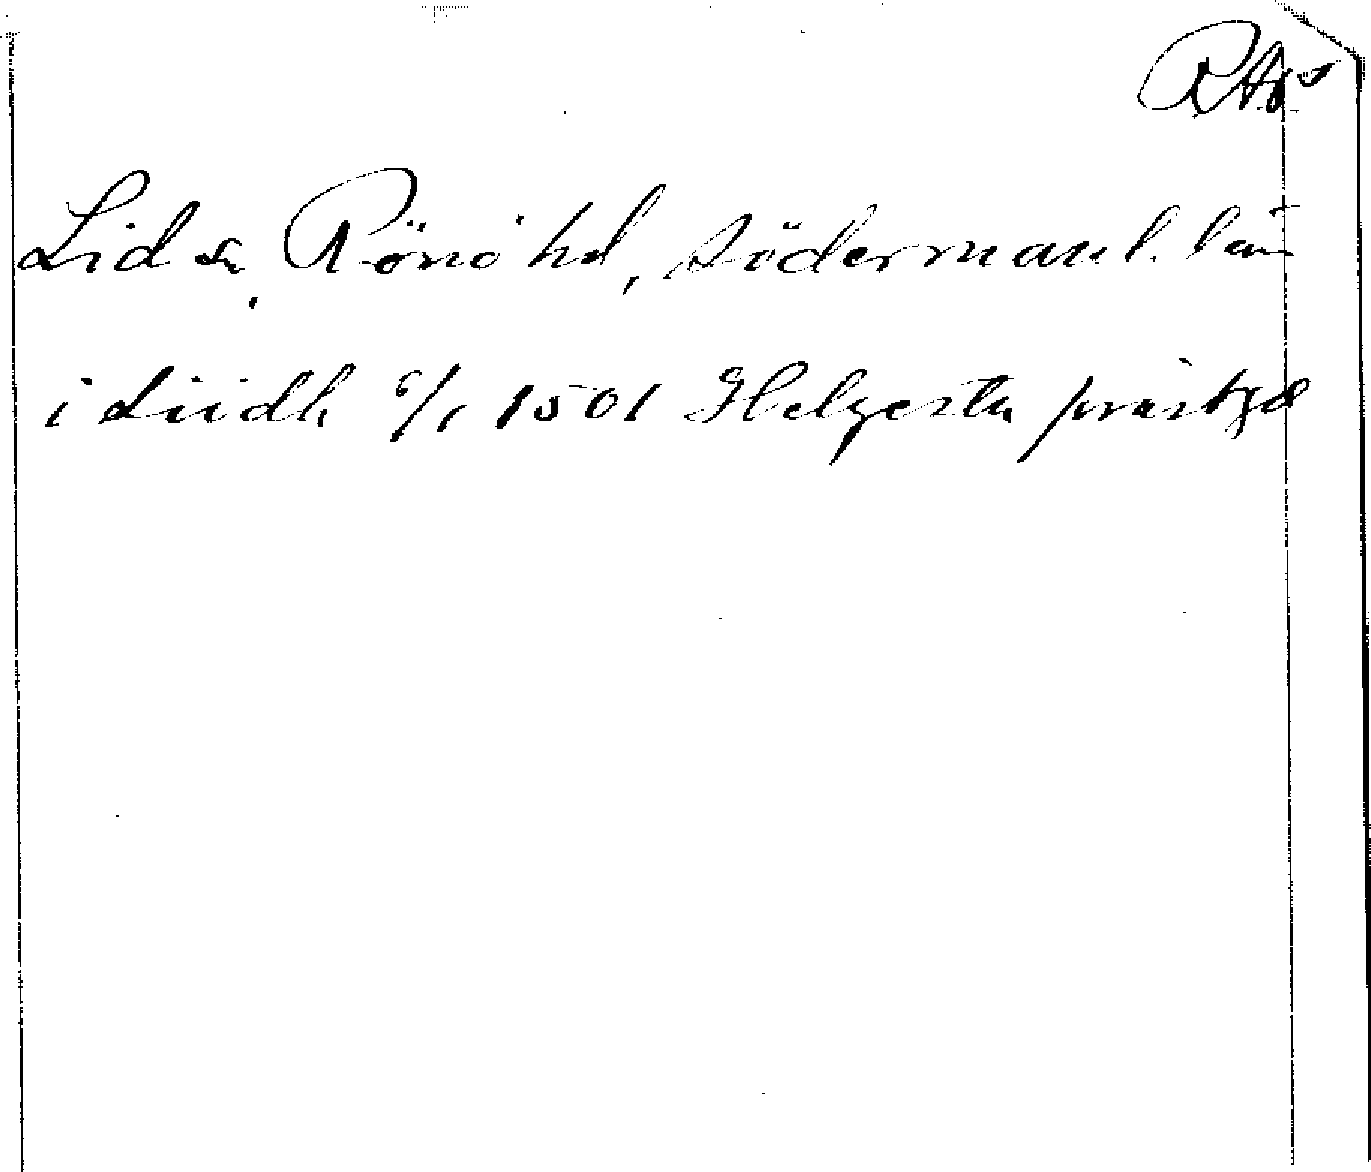 Lid sn, Rönö hd, Södermanl. län
i Liidh 6/1 1501 Helgesta prästgd